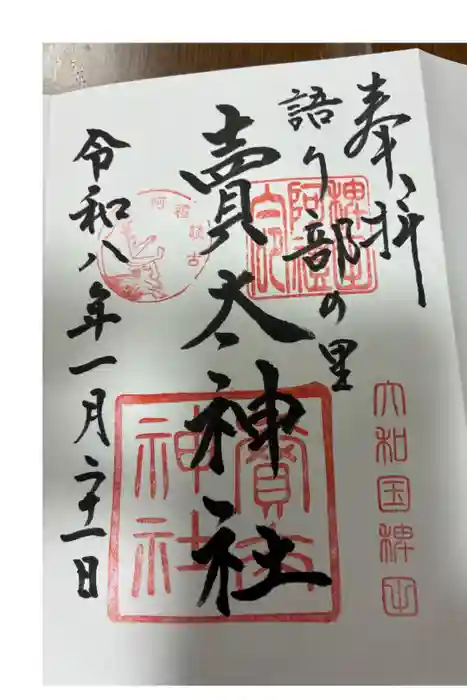 奉拝
語り部の里
賣太神社
令和八年一月二十一日
大和国稗田
稗田阿禮
賣太神社